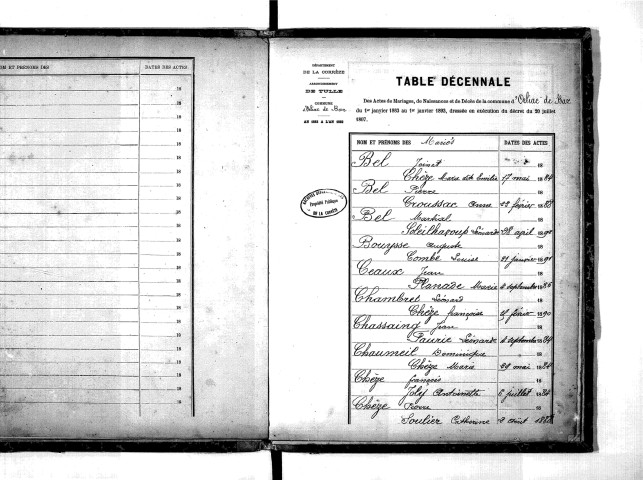 NOM ET PRÉNOMS DES
DATES DES ACTES
18
18
18
18
18
18
18
18
18
18
18
18
18
18
18
18
18
18
DÉPARTEMENT
DE LA CORRÈZE
ARRONDISSEMENT
DE TULLE
COMMUNE
d'Orliac de Bar
TABLE DÉCENNALE
Des Actes de Mariages, de Naissances et de Décès de la commune d'Orliac de Bar
du 1er janvier 1883 au 1er janvier 1893, dressée en exécution du décret du 20 juillet
1807.
NOM ET PRÉNOMS DES Mariés
DATES DES ACTES
Bel
18
Chèze Marie dite Emilie 17 mai 1884
Bel Pierre 18
Croussac Anne 22 février 1888
Bel Martial 18
Soleilhavoup Léonarde 28 april 1890
Bouysse Auguste 18
Combe Louise 21 janvier 1891
Ceaux Jean 18
Planade Marie septembre 1886
Chambret Léonard 18
Chèze françoise février 1890
Chassaing Jean 18
Léonarde septembre 1884
Chaumeil Dominique 18
Chèze Marie 29 mai 1884
Chèze françois 18
Antoinette 6 juillet 1884
Chèze Pierre 18
Soulier Catherine 2 août 1888
Propriété Publique
DE LA CORRÈZE